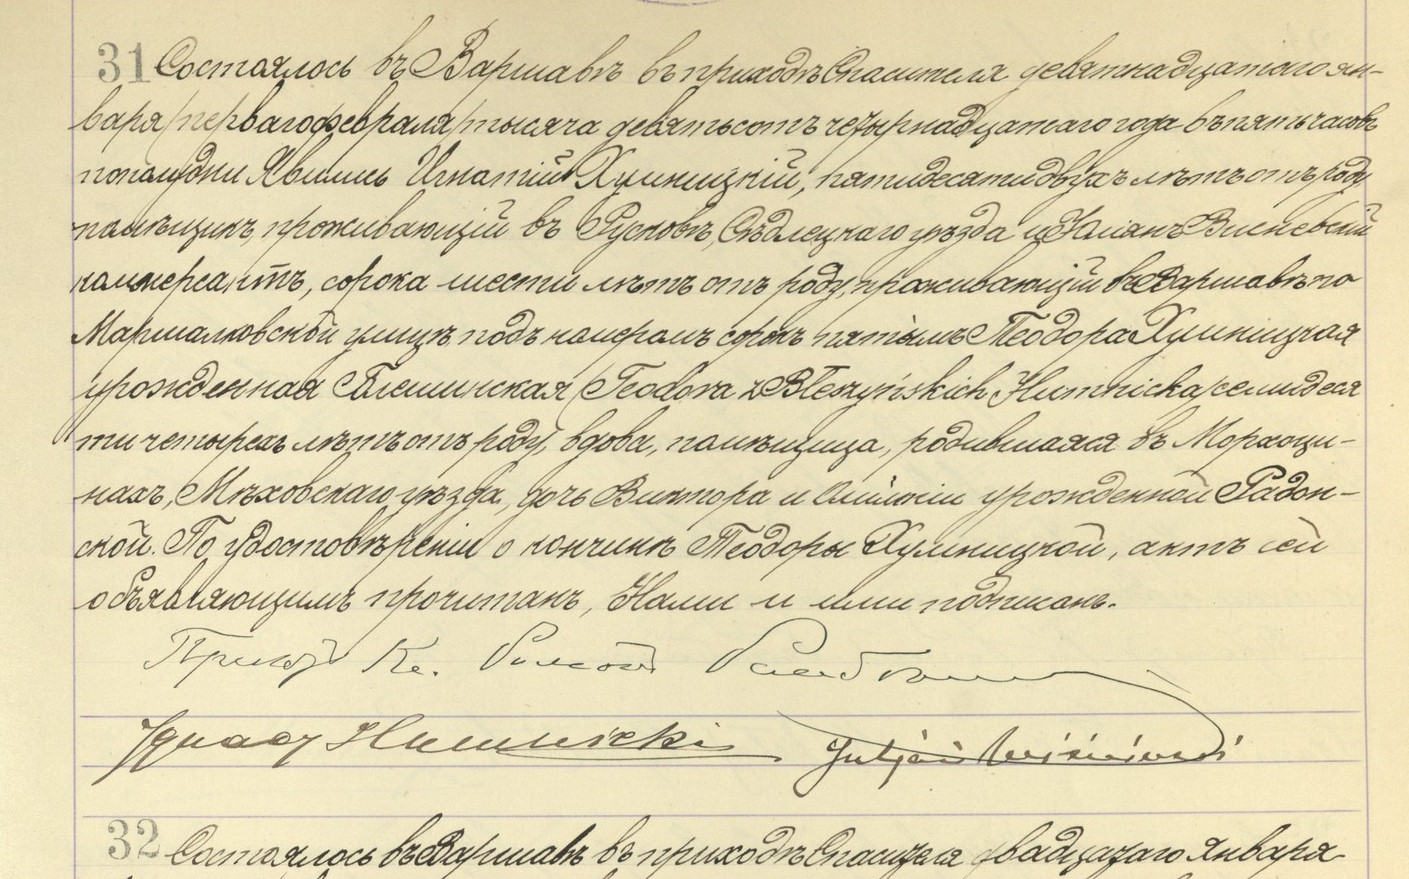 31 Состоялось въ Варшавѣ въ приходѣ Спасителя девятнадцатаго ян-
варя /перваго февраля/ тысяча девятьсотъ четырнадцатаго года въ пять часовъ
пополудни. Явились Игнатій Хумницкій, пятидесяти двухъ лѣтъ отъ роду
помѣщикъ, проживающій въ Русковѣ, Сѣдлецкаго уѣзда и Юліанъ Висневскій
коммерсантъ, сорока шести лѣтъ отъ роду, проживающій въ Варшавѣ по
Маршалковской улицѣ подъ номеромъ сорокъ пятымъ Теодора Хумницкая
урожденная Блешинская /Teodora z Błeszyńskich Humnicka/ семидеся
ти четырехъ лѣтъ отъ роду, вдова, помѣщица, родившаяся въ
Мѣховскаго уѣзда, дочь Виктора и урожденной Радон-
ской. По удостовѣреніи о кончинѣ Теодоры Хумницкой, актъ сей
объявляющимъ прочитанъ, Нами и ими подписанъ.
Кс.
Ignacy Humnicki Juljan Wiśniewski
32 Состоялось въ Варшавѣ въ приходѣ Спасителя двадцатаго Января